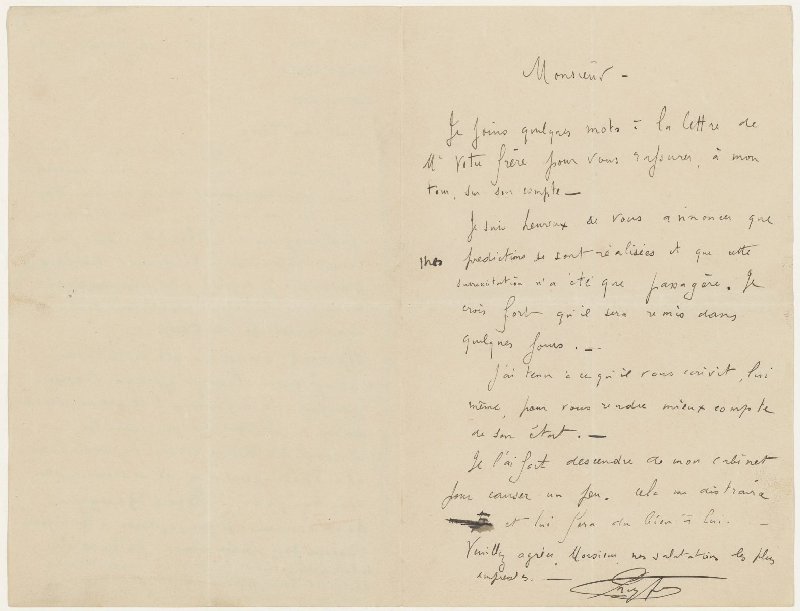 Monsieur –
Je joins quelques mots à la lettre de
Mr Votre frère pour vous rassurer, à mon
tour, sur son compte —
Je suis heureux de vous annoncer que
mes predictions se sont réalisées et que cette
surexcitation n'a été que passagère. Je
crois fort qu'il sera remis dans
quelques jours. —
J'ai tenu à ce qu'il vous écrivit, lui
même, pour vous rendre mieux compte
de son état. —
Je l'ai fait descendre de mon cabinet
pour causer un peu. Cela me distraira
et lui fera du bien à lui. —
Veuillez agréer, Monsieur, mes salutations les plus
empressées. —